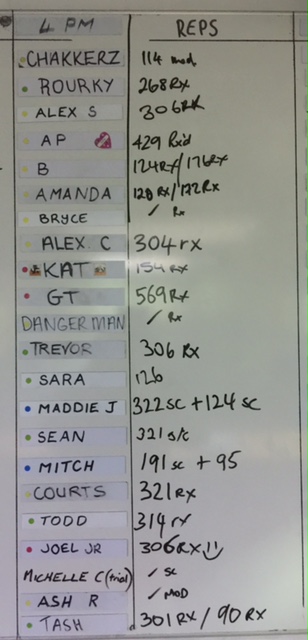 4 PM REPS
CHAKKERZ 114 mod
ROURKY 268 RX
ALEX S 306 RX
AP 429 Rx'd
B 124RX/176RX
AMANDA 128 RX/172 RX
BRYCE / Rx
ALEX. C 304 rx
KAT 154 RX
GT 569 Rx
DANGERMAN / Rx
TREVOR 306 RX
SARA 126
MADDIE J 322 SC + 124 SC
SEAN 321 s/c
MITCH 191 sc + 95
COURTS 321 RX
TODD 314 rx
JOEL JR 306RX
MICHELLE C (trial) / SC
ASH R / MOD
TASH 301 RX / 90 RX